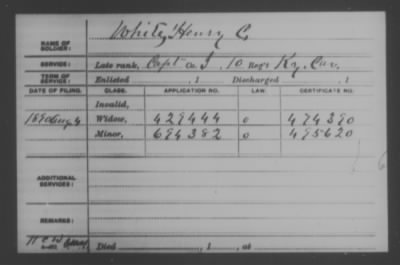 White, Henry C.
NAME OF SOLDIER:
SERVICE: Late rank, Capt Co. I, 10 Reg't Ky. Cav.
TERM OF SERVICE: Enlisted , 1 Discharged , 1
DATE OF FILING. CLASS. APPLICATION NO. LAW. CERTIFICATE NO.
Invalid,
1890 Aug 4 Widow, 429444 0 474390
Minor, 694382 0 495620
ADDITIONAL SERVICES:
REMARKS:
Died , 1 , at